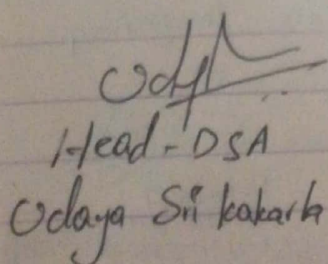 Head - DSA
Udaya Sri kakarla